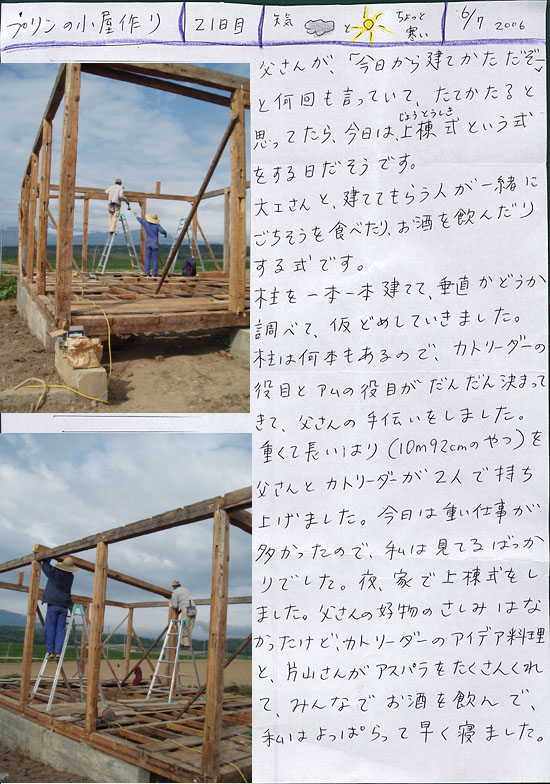 プリンの小屋作り 21日目 天気 と ちょっと寒い 6/7 2006
父さんが、「今日から建てかただぞー」
と何回も言っていて、たてかたると
思ってたら、今日は、上棟式という式
じょうとうしき
をする日だそうです。
大工さんと、建ててもらう人が一緒に
ごちそうを食べたり、お酒を飲んだり
する式です。
柱を一本一本建てて、垂直かどうか
調べて、仮どめしていきました。
柱は何本もあるので、カトリーダーの
役目とアムの役目がだんだん決まって
きて、父さんの手伝いをしました。
重くて長いはり(10m92cmのやつ)を
父さんとカトリーダーが2人で持ち
上げました。今日は重い仕事が
多かったので、私は見てるばっか
りでした。夜、家で上棟式をし
ました。父さんの好物のさしみはな
かったけど、カトリーダーのアイデア料理
と、片山さんがアスパラをたくさんくれ
て、みんなでお酒を飲んで、
私はよっぱらって早く寝ました。